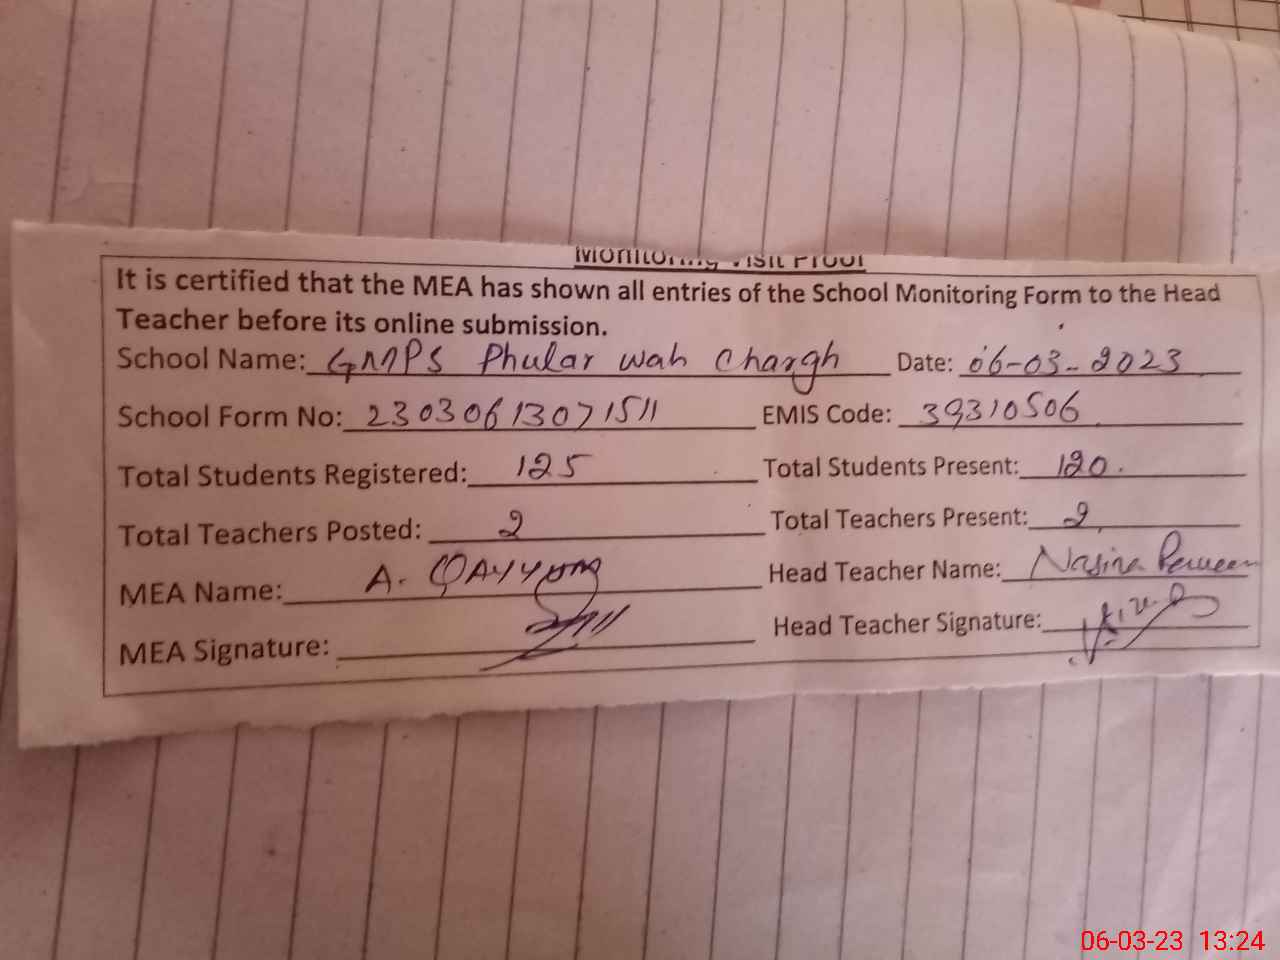 Monitoring Visit Proof
It is certified that the MEA has shown all entries of the School Monitoring Form to the Head
Teacher before its online submission.
School Name: GMPS Phular wah Chargh Date: 06-03-2023
School Form No: 23030613071511 EMIS Code: 39310506
Total Students Registered: 125 Total Students Present: 120.
Total Teachers Posted: 2 Total Teachers Present: 2
MEA Name: A. QAYYUM Head Teacher Name: Nasira Perveen
MEA Signature: Head Teacher Signature:
06-03-23 13:24